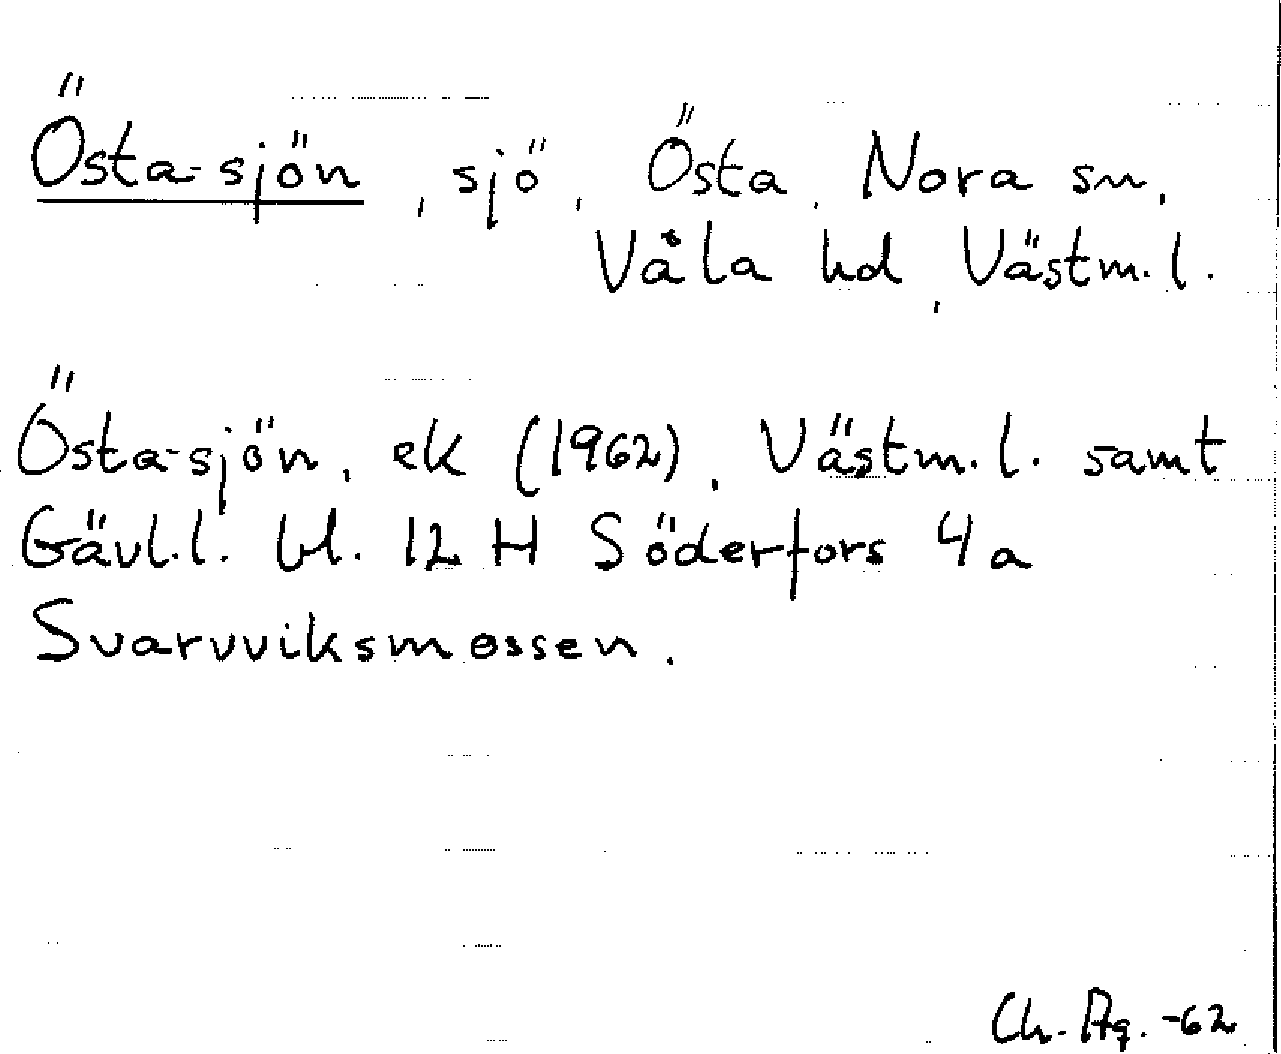 Östa-sjön, sjö, Östa, Nora sn,
Våla hd, Västm.l.
Östa-sjön, ek (1962), Västm.l. samt
Gävl.l. bl. 12 H Söderfors 4a
Svarvviksmossen.
Ch. Ag. -62